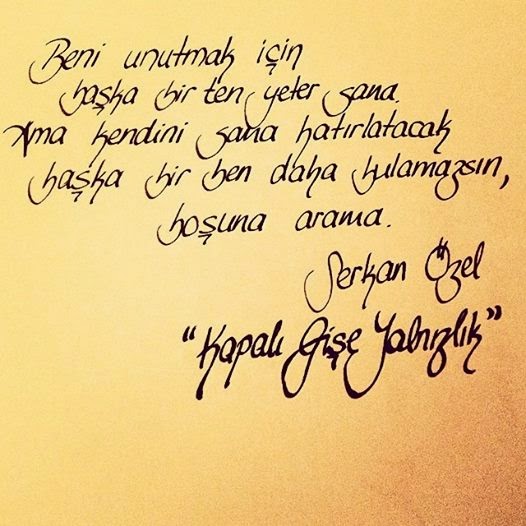 Beni unutmak için
başka bir ten yeter sana.
Ama kendini sana hatırlatacak
başka bir ben daha bulamazsın,
boşuna arama.
Serkan Özel
"Kapalı Gişe Yalnızlık"